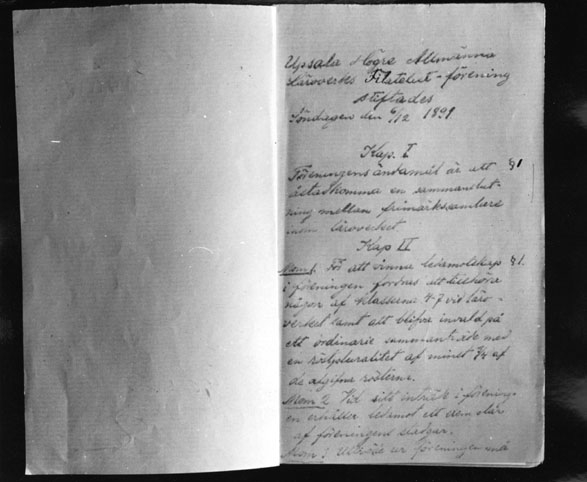 Upsala Högre Allmänna
Läroverks Filatelist-förening
stiftades
Söndagen den 6/12 1891
Kap. I
Föreningens ändamål är att §1
åstadkomma en sammanslut-
ning mellan frimärkssamlare
inom läroverket.
Kap II
Mom 1. För att vinna ledamotskap §1.
i föreningen fordras att tillhöra
någon af klasserna 4-7 vid läro-
verket samt att blifva invald på
ett ordinarie sammanträde med
en röstpluralitet af minst 3/4 af
de afgifna rösterna.
Mom 2. Vid sitt inträde i förening-
en erhåller ledamot ett exemplar
af föreningens stadgar.
Mom Utträde ur föreningen må